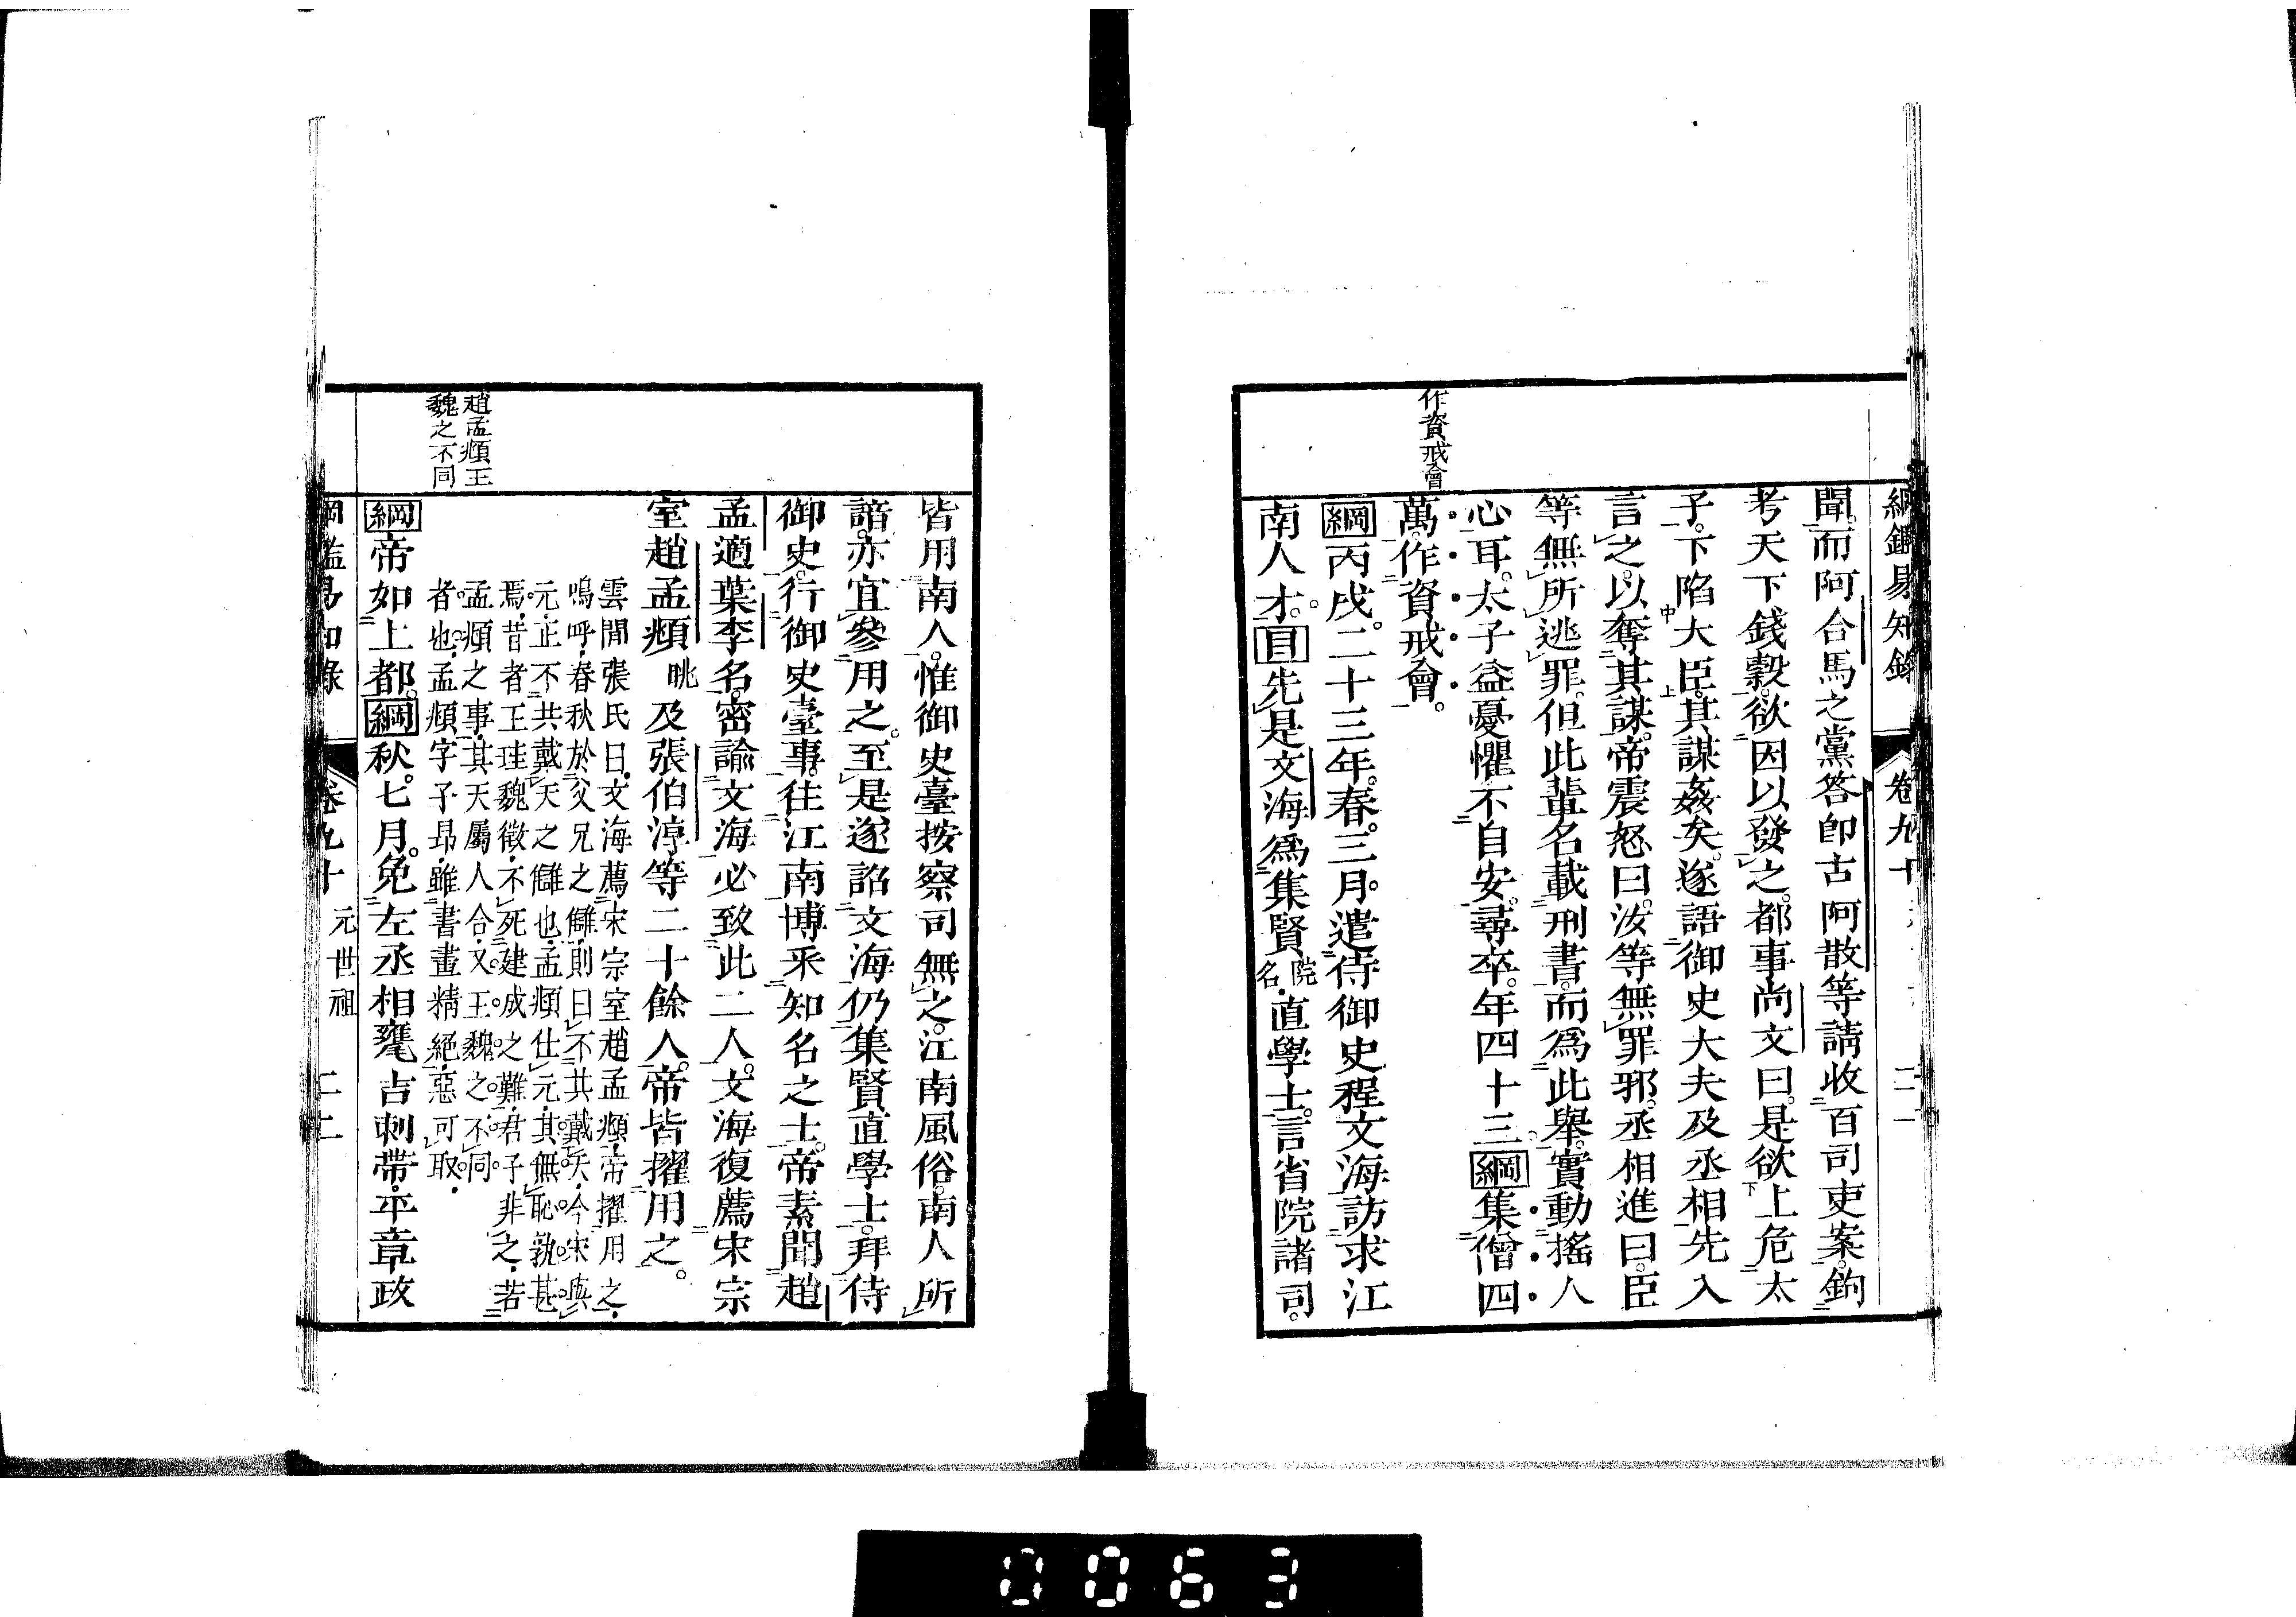 綱鑑易知錄 卷九十
聞。而阿合馬之黨答卽古阿散等請收百司吏案。鉤
考天下錢穀。欲因以發之。都事尚文曰。是欲上危太
子。下陷大臣。其謀姦矣。遂語御史大夫及丞相先入
言之。以奪其謀。帝震怒曰。汝等無罪邪。丞相進曰。臣
等無所逃罪。但此輩名載刑書。而爲此舉。實動搖人
心耳。太子益憂懼不自安。尋卒。年四十三。綱集僧四
作資戒會
萬。作資戒會。
綱丙戌。二十三年。春。三月。遣侍御史程文海訪求江
南人才。目先是文海爲集賢院名直學士。言省院諸司。
皆用南人。惟御史臺按察司無之。江南風俗。南人所
諳。亦宜參用之。至是遂詔文海仍集賢直學士。拜侍
御史。行御史臺事。往江南博采知名之士。帝素聞趙
孟適葉李名。密諭文海必致此二人。文海復薦宋宗
室趙孟頫眺及張伯淳等二十餘人。帝皆擢用之。
雲閒張氏曰。文海薦宋宗室趙孟頫。帝擢用之。
嗚呼。春秋於父兄之讎。則曰不共戴天。今宋與
元。正不共戴天之讎也。孟頫仕元。其無恥孰甚
焉。昔者王珪魏徵。不死建成之難。君子非之。若
趙孟頫王
魏之不同
孟頫之事。其天屬人合。又王魏之不同
者也。孟頫字子昂。雖書畫精絕。惡可取。
綱帝如上都。綱秋。七月。免左丞相甕吉剌帶。平章政
綱鑑易知錄 卷九十 元世祖 二二